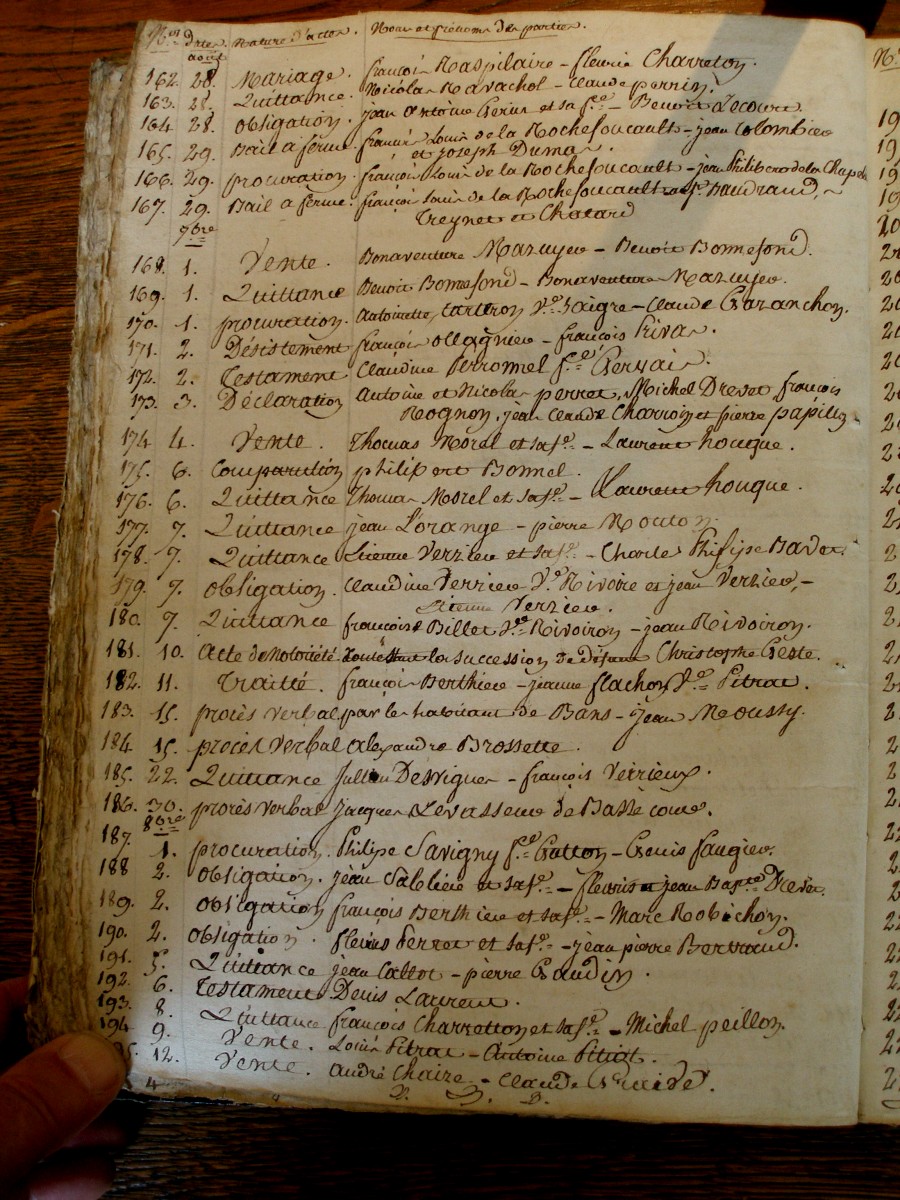 N.os Dates Nature d'actes. Noms et prénoms des parties.
août
162. 28. Mariage. françois Raspilaire - fleurie Charreton.
163. 28. Quittance. Nicolas Ravachol - Claude perrin.
164 28. obligation. jean Antoine et sa fe. - Benoit Lecourt.
165. 29. Bail a ferme. françois Louis de la Rochefoucault - jean Colombier
et joseph Dumas.
166. 29. procuration. françois Louis de la Rochefoucault - jean Philibert de la Chapele
167. 29. Bail a ferme. françois Louis de la Rochefoucault Baudrand, -
Treynet et Chatard
7bre
168. 1. Vente. Bonaventure Mazuyer - Benoit Bonnefond.
169. 1. Quittance Benoit Bonnefond - Bonaventure Mazuyer.
170. 1. procuration. Antoinette tartron Ve. - Claude Garanchon.
171. 2. Désistement françois ollagnier - françois Privas.
172. 2. Testament Claudine Perronnel fe. Gervais.
173. 3. Déclaration Antoine et Nicolas perrot, Michel Drevet françois
Rognon, jean Claude Charroin et pierre papillon
174 4. Vente. Thomas Morel et sa fe. - Laurent houque.
175. 6. Comparution philipert Bonnel.
176. 6. Quittance Thomas Morel et sa fe. - Laurent houque.
177. 7. Quittance jean L'orange - pierre Mouton.
178. 7. Quittance Etienne Verrier et sa fe. - Charles Philipe Badet.
179. 7. obligation. Claudine Verrier Ve. Rivoire et jean Verrier, -
Etienne Verrier.
180. 7. Quittance françoise Billet Ve. Rivoiron - jean Rivoiron.
181. 10. Acte de Notoriété la succession de défunt Christophe Geste.
182. 11. Traitté. françois Berthier - jeanne flachon Ve. Pitrat.
183. 15. procès verbal par les habitant de Bans - jean Moussy.
184 15. procès verbal alexandre Brossette.
185. 22. Quittance Julien Desvignes - françois Verrieux.
186. 30. procès verbal jacques Levasseur de Basse cour.
8bre
187. 1. procuration. Philipe Savigny fe. Gutton - Genis faugier.
188 2. obligation. jean Sableire et sa fe. - fleuris et jean Bapte Drevet.
189. 2. obligation françois Berthier et sa fe. - Marc Robichon.
190. 2. obligation. fleuries Perret et sa fe. - jean pierre Bertrand.
191. 5. Quittance jean Cattot - pierre Gaudin.
192. 6. Testament Denis Laurent.
193. 8. Quittance françois Charretton et sa fe. - Michel peillon.
194 9. Vente. Louis Pitrat - Antoine Pitiot.
12. Vente. André Chaize - Claude